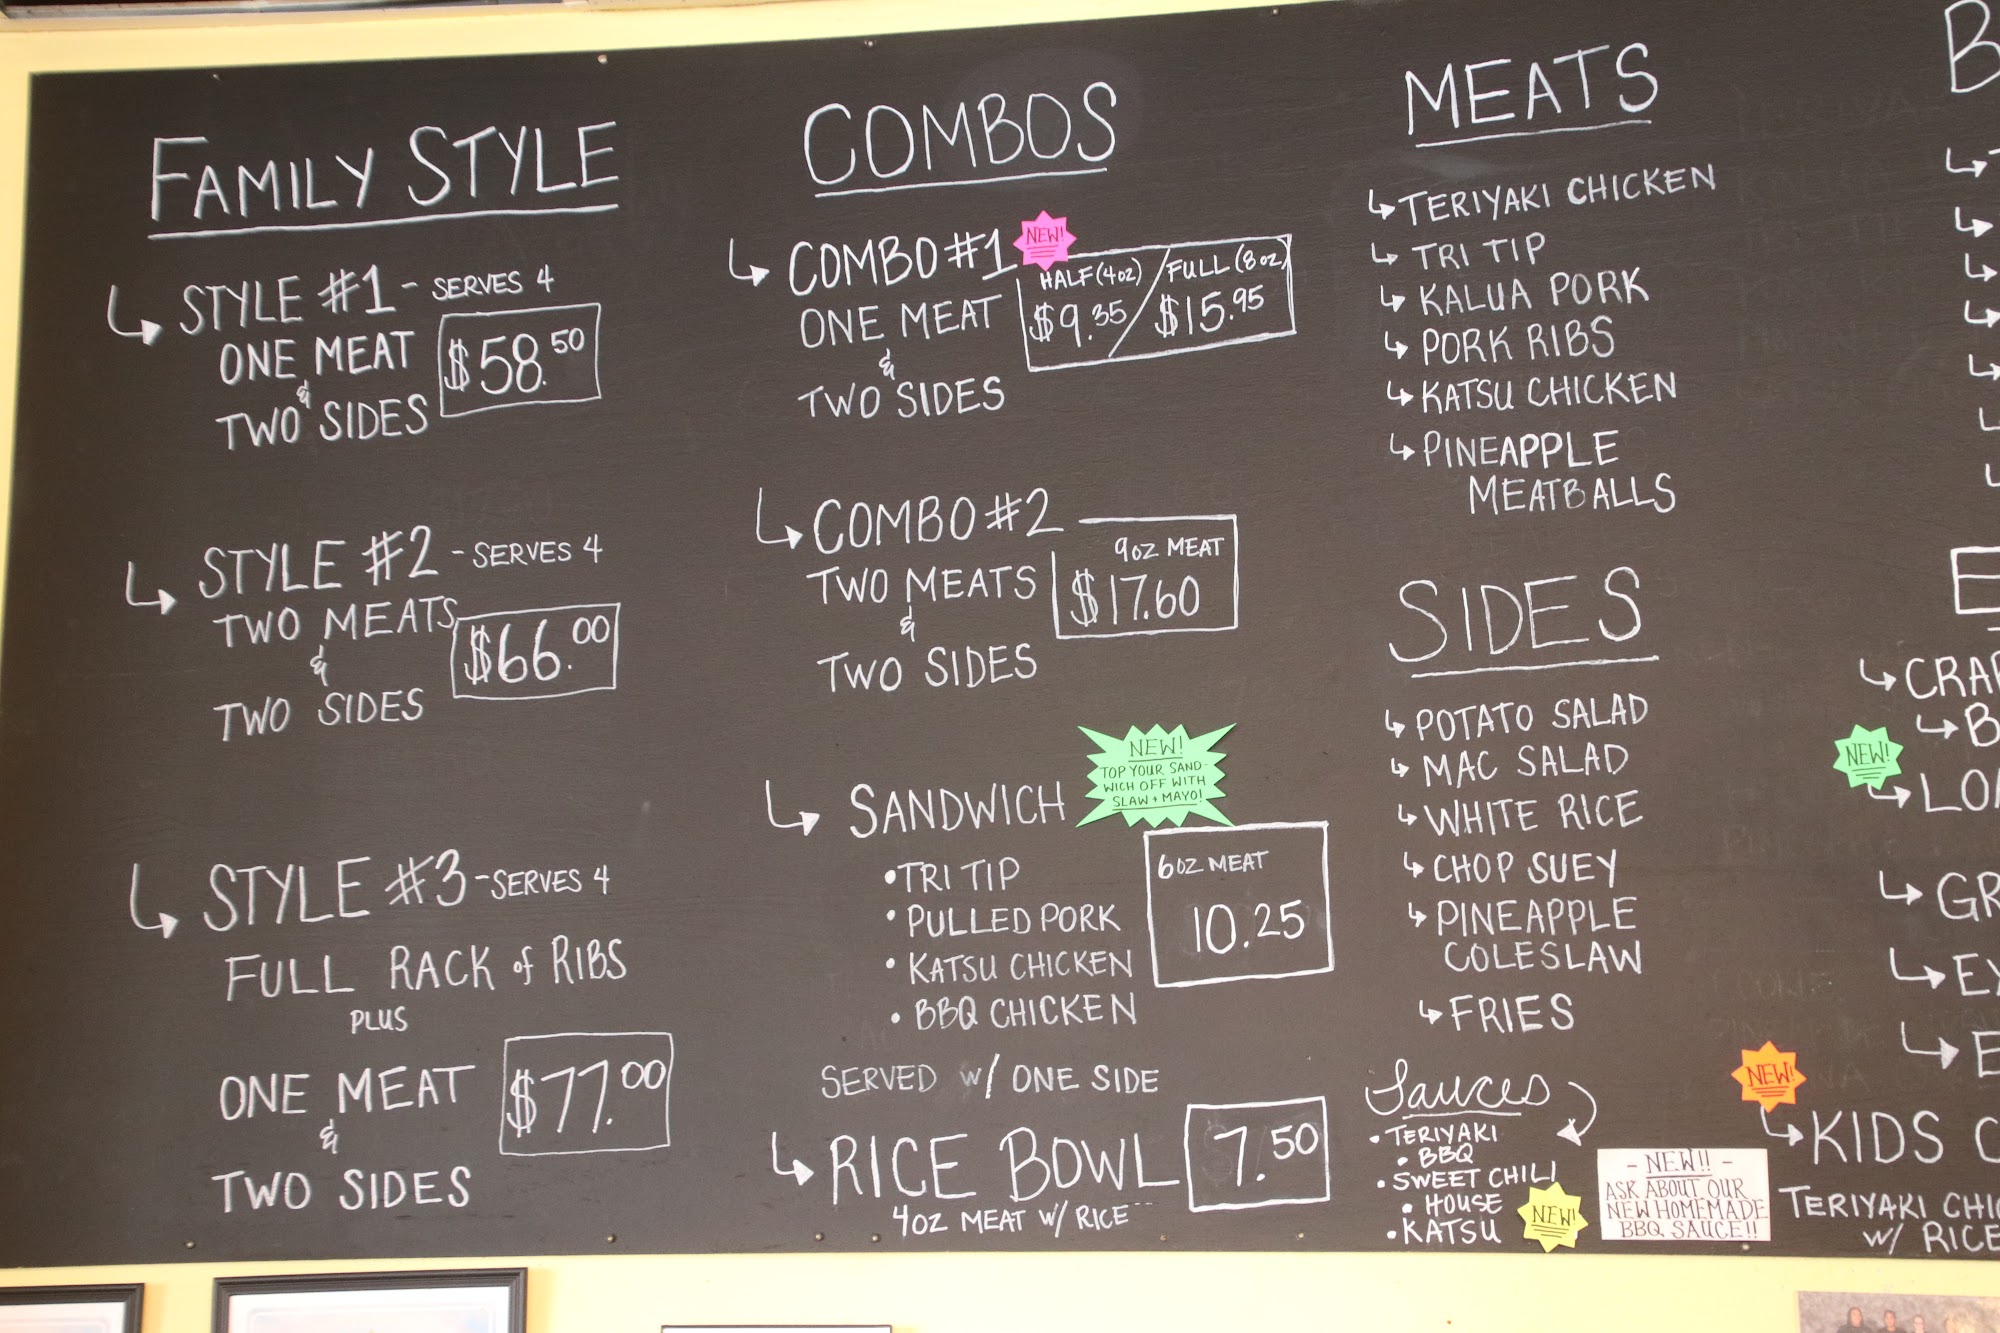 FAMILY STYLE
STYLE #1 - SERVES 4
ONE MEAT
&
TWO SIDES
$58.50
STYLE #2 - SERVES 4
TWO MEATS
&
TWO SIDES
$66.00
STYLE #3 - SERVES 4
FULL RACK of RIBS
PLUS
ONE MEAT
&
TWO SIDES
$77.00
COMBOS
COMBO #1
NEW!
ONE MEAT
&
TWO SIDES
HALF (4oz) / FULL (8oz)
$9.35 / $15.95
COMBO #2
TWO MEATS
&
TWO SIDES
9oz MEAT
$17.60
SANDWICH
NEW!
TOP YOUR SAND-
WICH OFF WITH
SLAW + MAYO!
• TRI TIP
• PULLED PORK
• KATSU CHICKEN
• BBQ CHICKEN
6oz MEAT
10.25
SERVED w/ ONE SIDE
RICE BOWL
7.50
4OZ MEAT w/ RICE
MEATS
TERIYAKI CHICKEN
TRI TIP
KALUA PORK
PORK RIBS
KATSU CHICKEN
PINEAPPLE
MEATBALLS
SIDES
POTATO SALAD
MAC SALAD
WHITE RICE
CHOP SUEY
PINEAPPLE
COLESLAW
FRIES
Sauces
• TERIYAKI
• BBQ
• SWEET CHILI
• HOUSE
• KATSU
NEW!
- NEW!! -
ASK ABOUT OUR
NEW HOMEMADE
BBQ SAUCE!!
NEW!
NEW!
KIDS C
TERIYAKI CHIC
w/ RICE